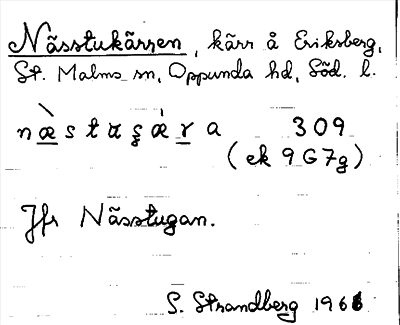 Nässtukärren, kärr å Eriksberg,
St. Malms sn, Oppunda hd, Söd. l.
næ̀stɯʂæ̀ra 309
(ek 9G7g)
Jfr Nässtugan.
S. Strandberg 1961